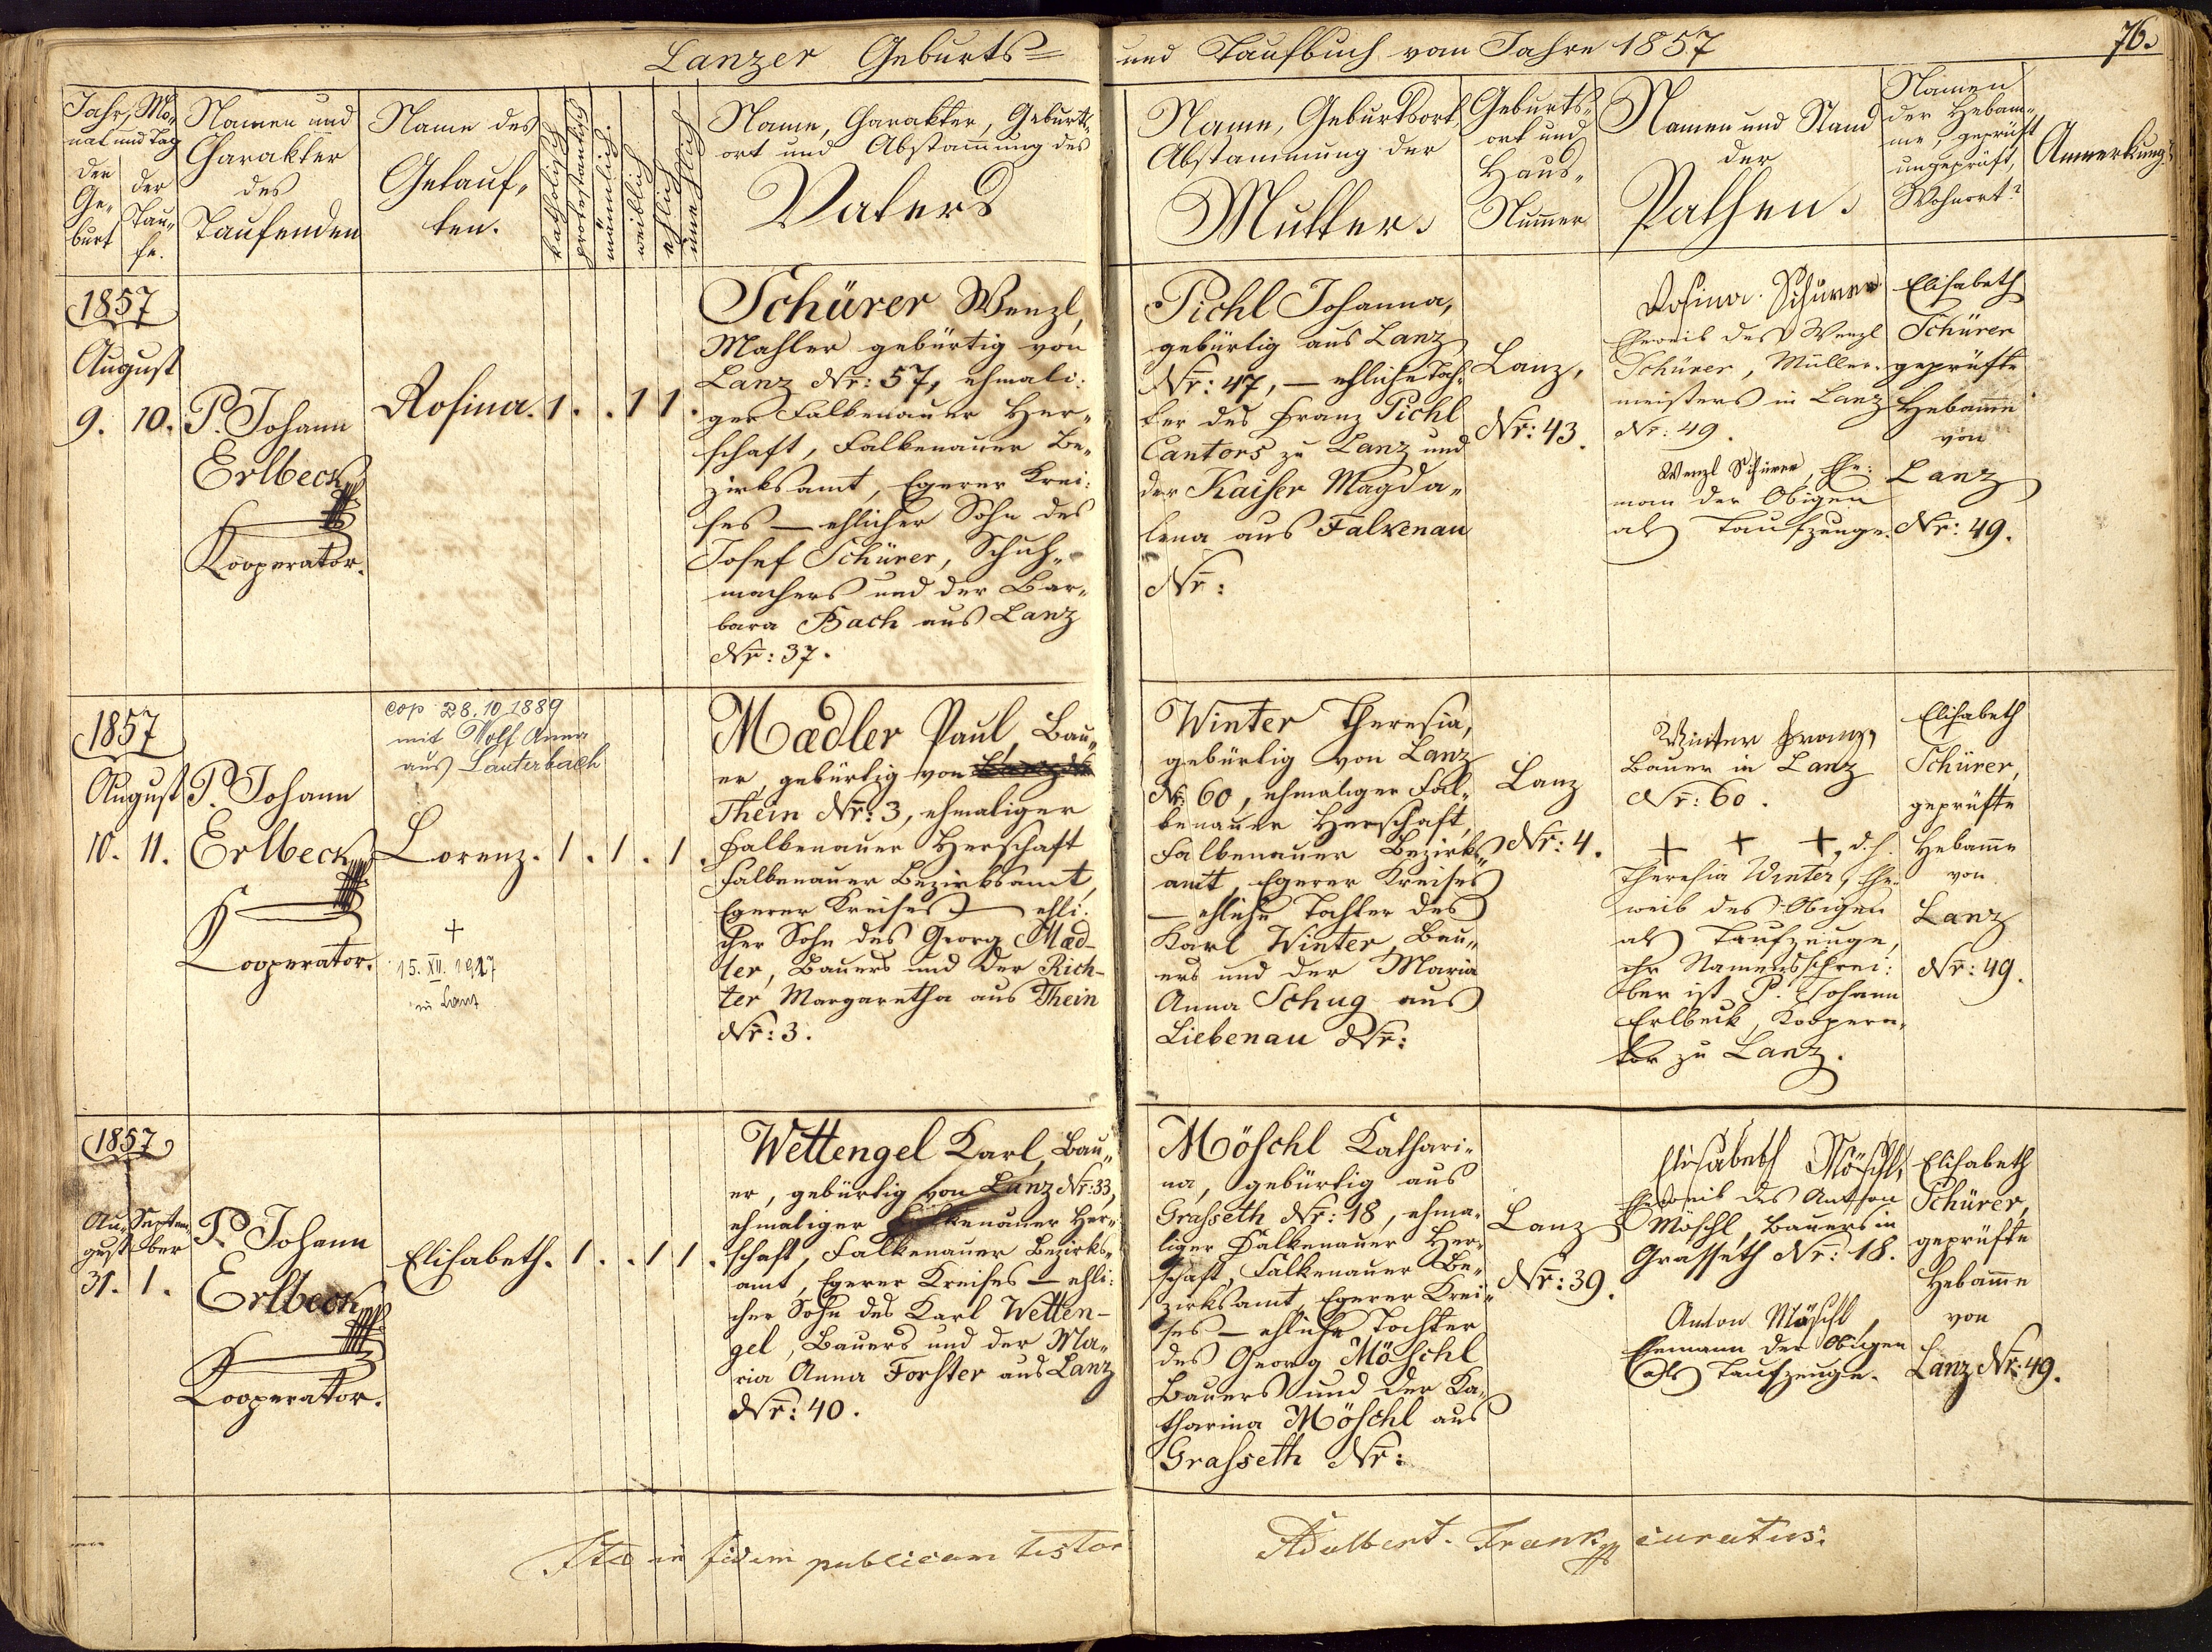 Lanzer Geburts=
und Taufbuch vom Jahre 1857
76.
Jahr, Mo„
nat und Tag
der
Ge„
burt
der
Tau„
fe.
Namen und
Charakter
des
Taufenden
Name des
Getauf„
ten.
katholisch
protestantisch
männlich.
weiblich
ehlich
unehlich
Name, Charakter, Geburts„
ort und Abstamung des
Vaters
Name, Geburtsort,
Abstammung der
Mutter.
Geburts„
ort und
Haus„
Numer
Namen und Stand
der
Pathen.
Namen
der Hebam„
me, geprüft
ungeprüft,
Wohnort?
Anmerkung
1857
August
9. 10.
P. Johann
Erlbeck
Kooperator.
Rosina. 1 . . 1 1 .
Schürer Wenzl,
Mahler gebürtig von
Lanz Nr: 57, ehmali:
ger Falkenauer Her„
schaft, Falkenauer Be„
zirksamt, Egerer Krei:
ses — ehlicher Sohn des
Josef Schürer, Schuh„
machers und der Bar„
bara Bach aus Lanz
Nr: 37.
Pichl Johanna,
gebürtig aus Lanz
Nr: 47, — ehliche Toch:
ter des Franz Pichl
Cantors zu Lanz und
der Kaiser Magda„
lena aus Falkenau
Nr:
Lanz,
Nr: 43.
Rosina Schürer
Eheweib des Wenzl
Schürer, Müller„
meisters in Lanz
Nr: 49.
Wenzl Schürer, Ehe:
man der Obigen
als Taufzeuge.
Elisabeth
Schürer
geprüfte
Hebamme
von
Lanz
Nr: 49.
1857
August
10. 11.
P. Johann
Erlbeck
Kooperator.
cop 28.10.1889
mit Wolf Anna
aus Lauterbach
Lorenz. 1 . 1 . 1 .
+
15. XII. 1927
in Lanz
Madler Paul, Bau„
er, gebürtig von
Thein Nr: 3, ehmaliger
Falkenauer Herschaft
Falkenauer Bezirksamt,
Egerer Kreises — ehli:
cher Sohn des Georg Mad-
ler, Bauers und der Rich-
ter Margaretha aus Thein
Nr: 3.
Winter Theresia,
gebürtig von Lanz
Nr: 60, ehmaliger Fal„
kenauer Herschaft,
Falkenauer Bezirks„
amt, Egerer Kreises
— ehliche Tochter des
Karl Winter, Bau„
ers und der Maria
Anna Schug aus
Liebenau Nr:
Lanz
Nr: 4.
Winter Franz,
Bauer in Lanz
Nr: 60.
+ + +, d. h.
Theresia Winter, Ehe„
weib des Obigen
als Taufzeuge,
ihr Namensschrei:
ber ist P. Johann
Erlbeck, Koopera„
tor zu Lanz.
Elisabeth
Schürer,
geprüfte
Hebamme
von
Lanz
Nr: 49.
1857
Au„
gust
31.
Septem„
ber
1.
P. Johann
Erlbeck
Kooperator.
Elisabeth. 1 . . 1 1 .
Wettengel Karl, Bau„
er, gebürtig von Lanz Nr: 33,
ehmaliger Falkenauer Her„
schaft, Falkenauer Bezirks„
amt, Egerer Kreises — ehli:
cher Sohn des Karl Wetten-
gel, Bauers und der Ma„
ria Anna Forster aus Lanz
Nr: 40.
Möschl Kathari:
na, gebürtig aus
Grasseth Nr: 18, ehma„
liger Falkenauer Her„
schaft, Falkenauer Be„
zirksamt, Egerer Krei„
ses — ehliche Tochter
des Georg Möschl
Bauers und der Ka„
tharina Möschl aus
Grasseth Nr:
Lanz
Nr: 39.
Elisabeth Möschl,
Eheweib des Anton
Möschl, Bauers in
Grasseth Nr: 18.
Anton Möschl,
Ehemann der Obigen
als Taufzeuge.
Elisabeth
Schürer,
geprüfte
Hebamme
von
Lanz Nr: 49.
Ita in fidem publicam testor
Adalbert Frank curatus.